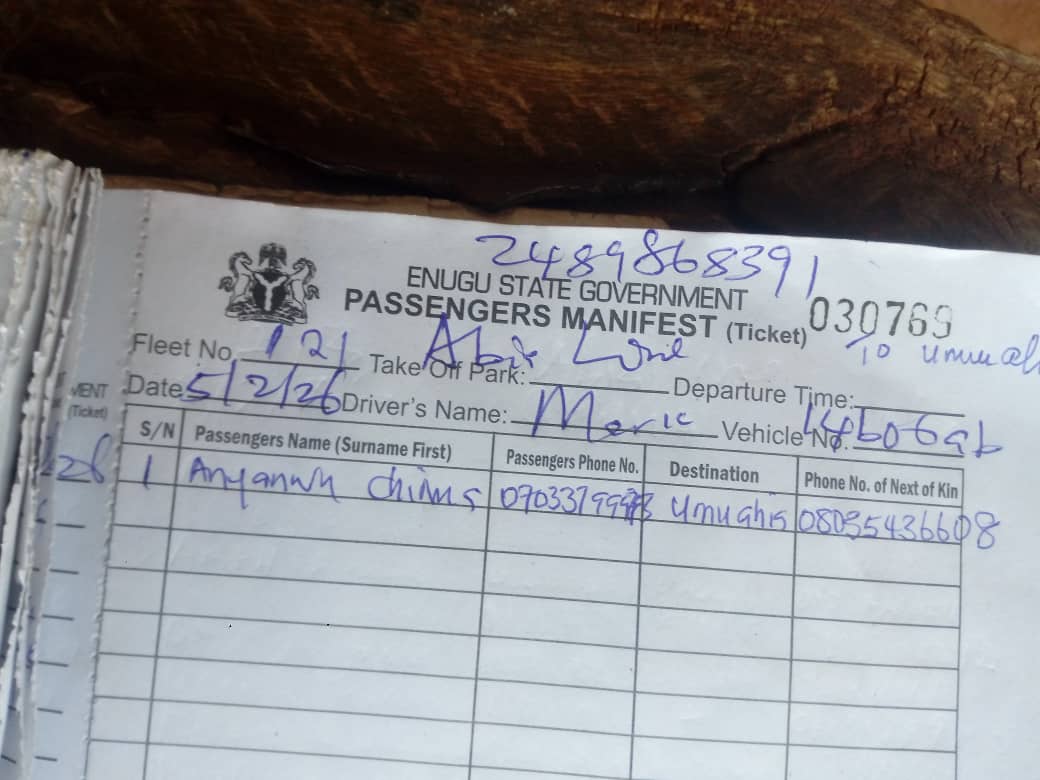 2489868391
ENUGU STATE GOVERNMENT
PASSENGERS MANIFEST (Ticket) 030769
Fleet No. 121 Take Off Park: Abia Line Departure Time:
To Umuah
Date 5/2/26 Driver's Name: Vehicle No. 14b06ab
MENT
(Ticket)
S/N Passengers Name (Surname First) Passengers Phone No. Destination Phone No. of Next of Kin
1 Anyanwu 0703379 Umuahia 08035436608